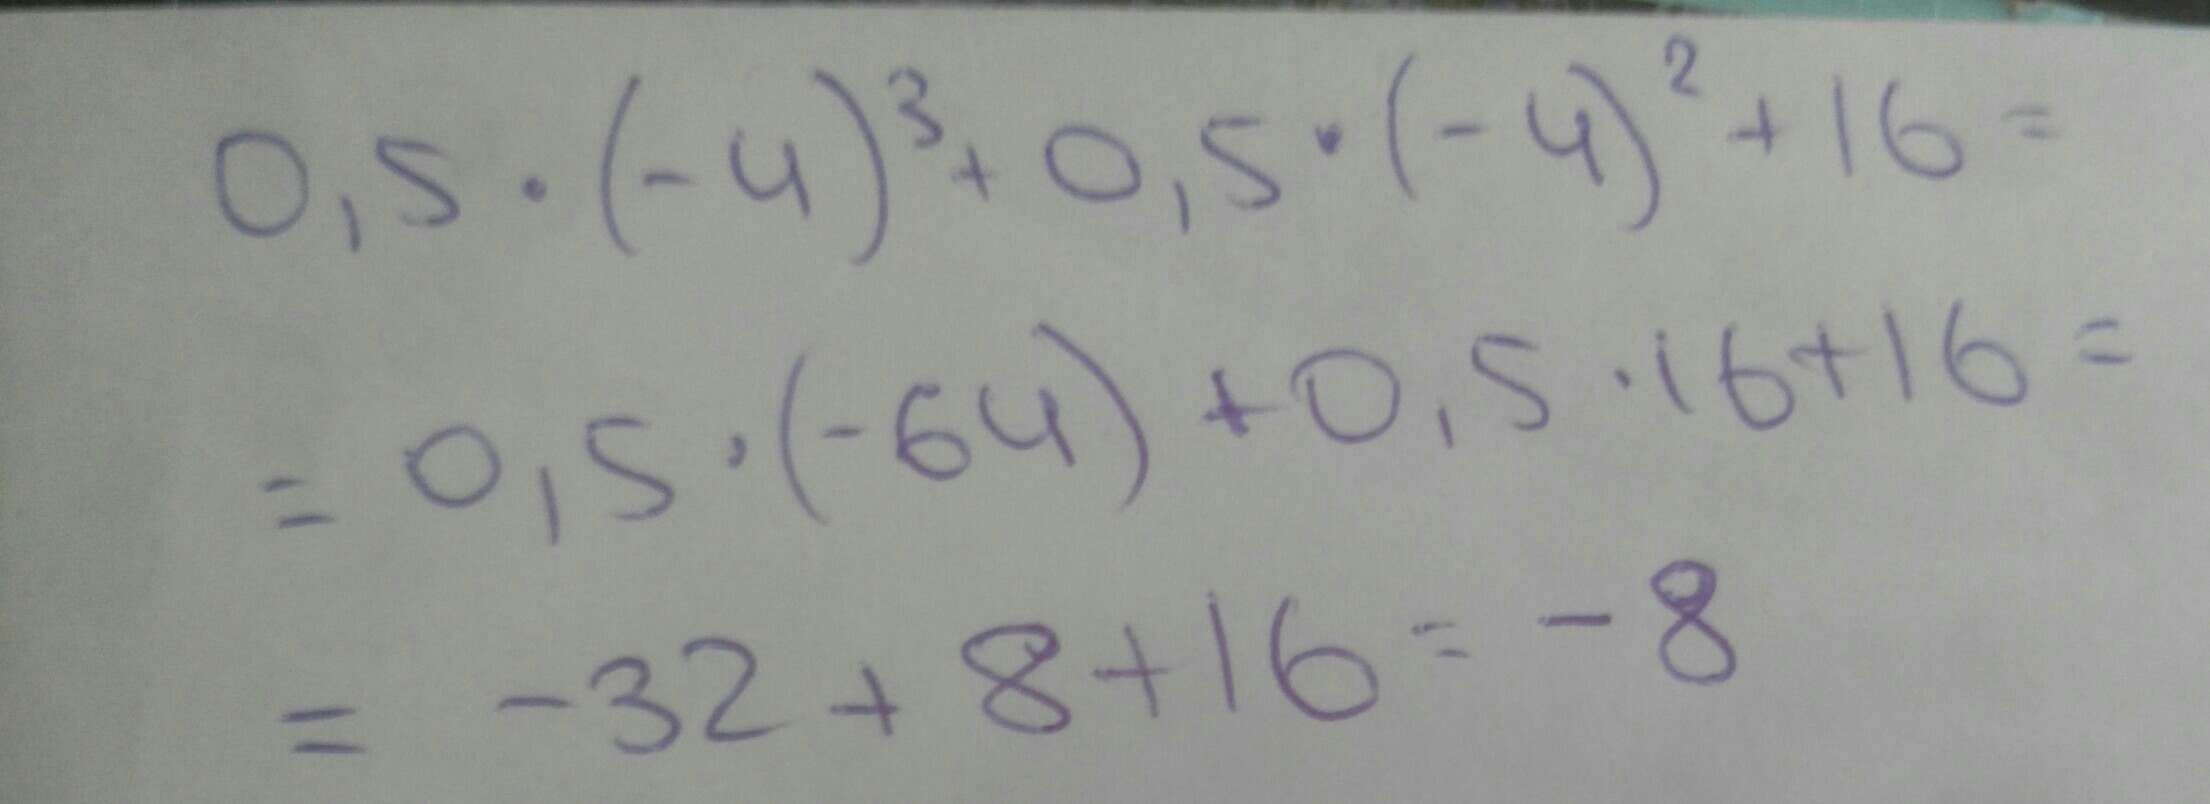 0,5·(-4)³+0,5·(-4)²+16=
=0,5·(-64)+0,5·16+16=
=-32+8+16=-8